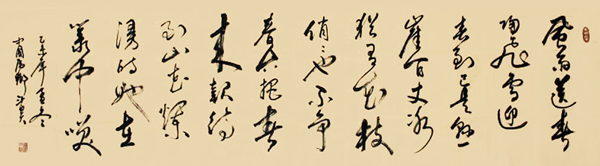 风雨送春
归飞雪迎
春到已是悬
崖百丈冰
犹有花枝
俏々也不争
春只把春
来报待
到山花烂
漫时她在
丛中笑
乙未年孟冬